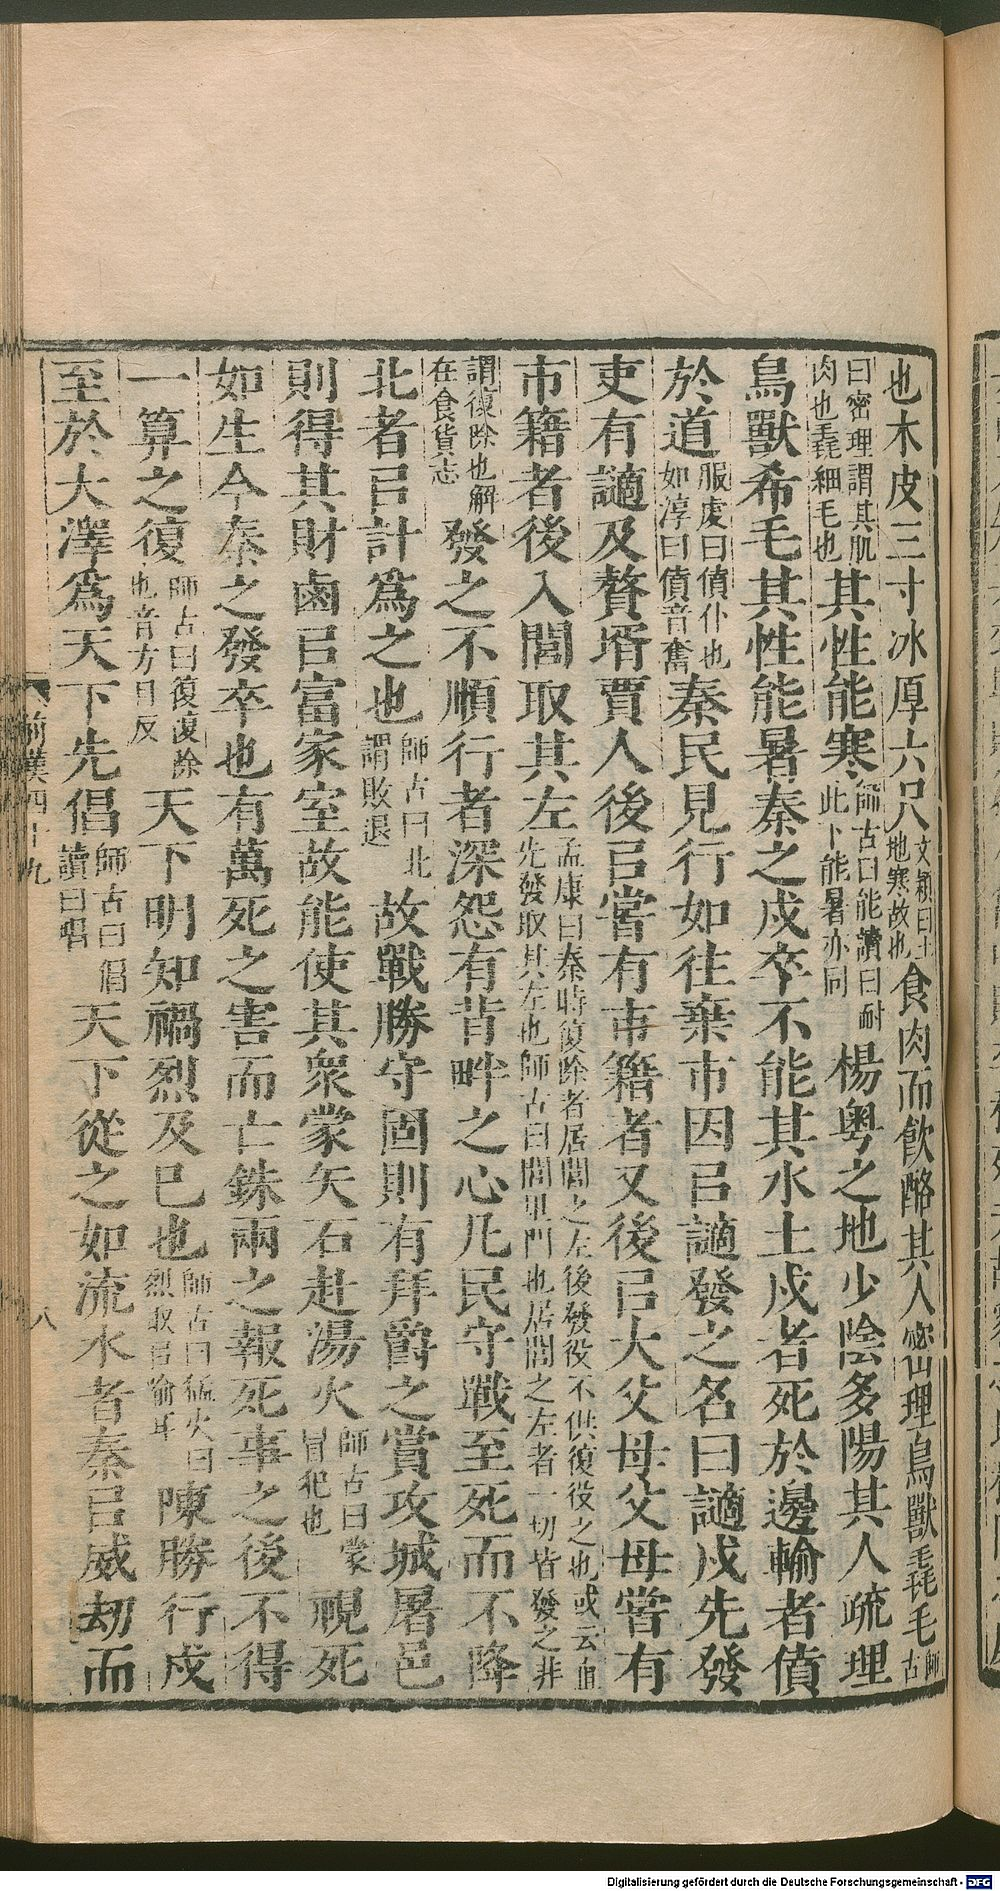 也木皮三寸冰厚六尺文穎曰土地寒故也食肉而飲酪其人密理鳥獸毳毛師古
曰密理謂其肌肉也毳細毛也其性能寒師古曰能讀曰耐此下能暑亦同楊粤之地少陰多陽其人疏理
鳥獸希毛其性能暑秦之戍卒不能其水土戍者死於邊輸者僨
於道服虔曰僨仆也如淳曰僨音奮秦民見行如往棄市因㠯讁發之名曰讁戍先發
吏有讁及贅壻賈人後㠯嘗有市籍者又後㠯大父母父母嘗有
市籍者後入閭取其左孟康曰秦時復除者居閭之左後發役不供復役之也或云直先發取其左也師古曰閭里門也居閭之左者一切皆發之非
謂復除也解在食貨志發之不順行者深怨有背畔之心凡民守戰至死而不降
北者㠯計爲之也師古曰北謂敗退故戰勝守固則有拜爵之賞攻城屠邑
則得其財鹵㠯富家室故能使其衆蒙矢石赴湯火師古曰蒙冒犯也視死
如生今秦之發卒也有萬死之害而亡銖兩之報死事之後不得
一算之復師古曰復復除也音方目反天下明知禍烈及已也師古曰猛火曰烈取㠯喻耳陳勝行戍
至於大澤爲天下先倡師古曰倡讀曰唱天下從之如流水者秦㠯威劫而
前漢四十九
八
Digitalisierung gefördert durch die Deutsche Forschungsgemeinschaft - DFG